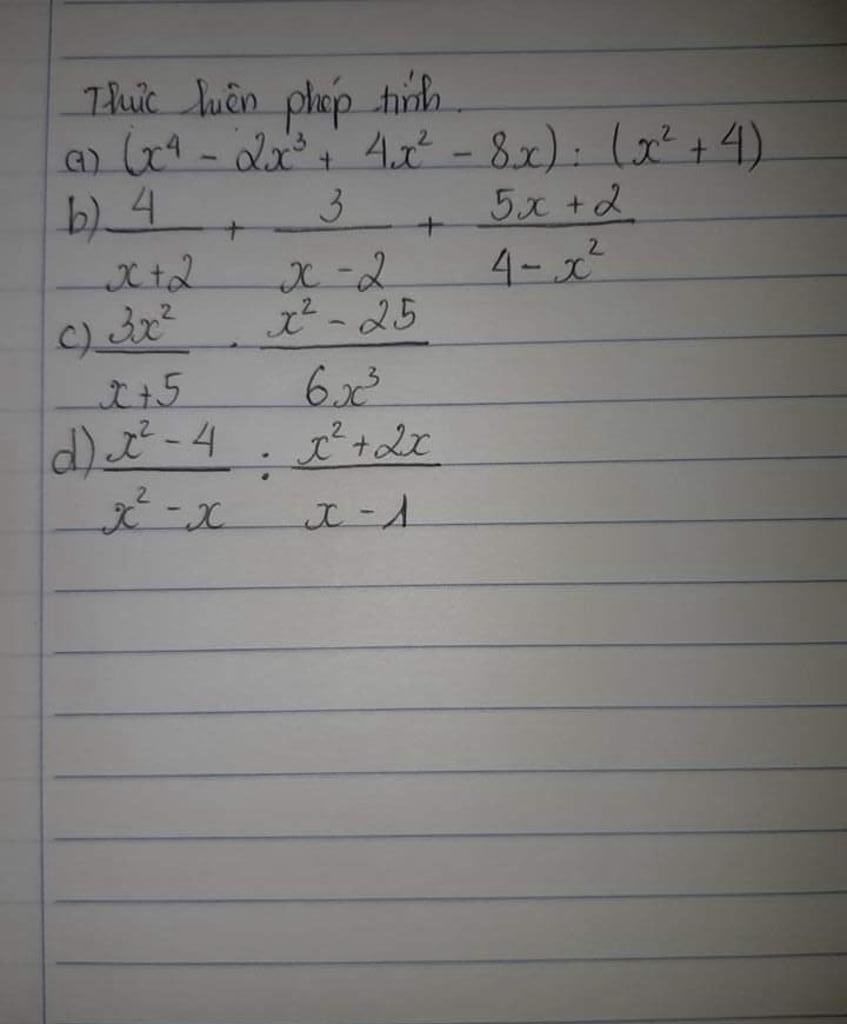 Thực hiện phép tính.
a) (x⁴ - 2x³ + 4x² - 8x) : (x² + 4)
b) 4/(x+2) + 3/(x-2) + (5x+2)/(4-x²)
c) 3x²/(x+5) . (x²-25)/6x³
d) (x²-4)/(x²-x) : (x²+2x)/(x-1)